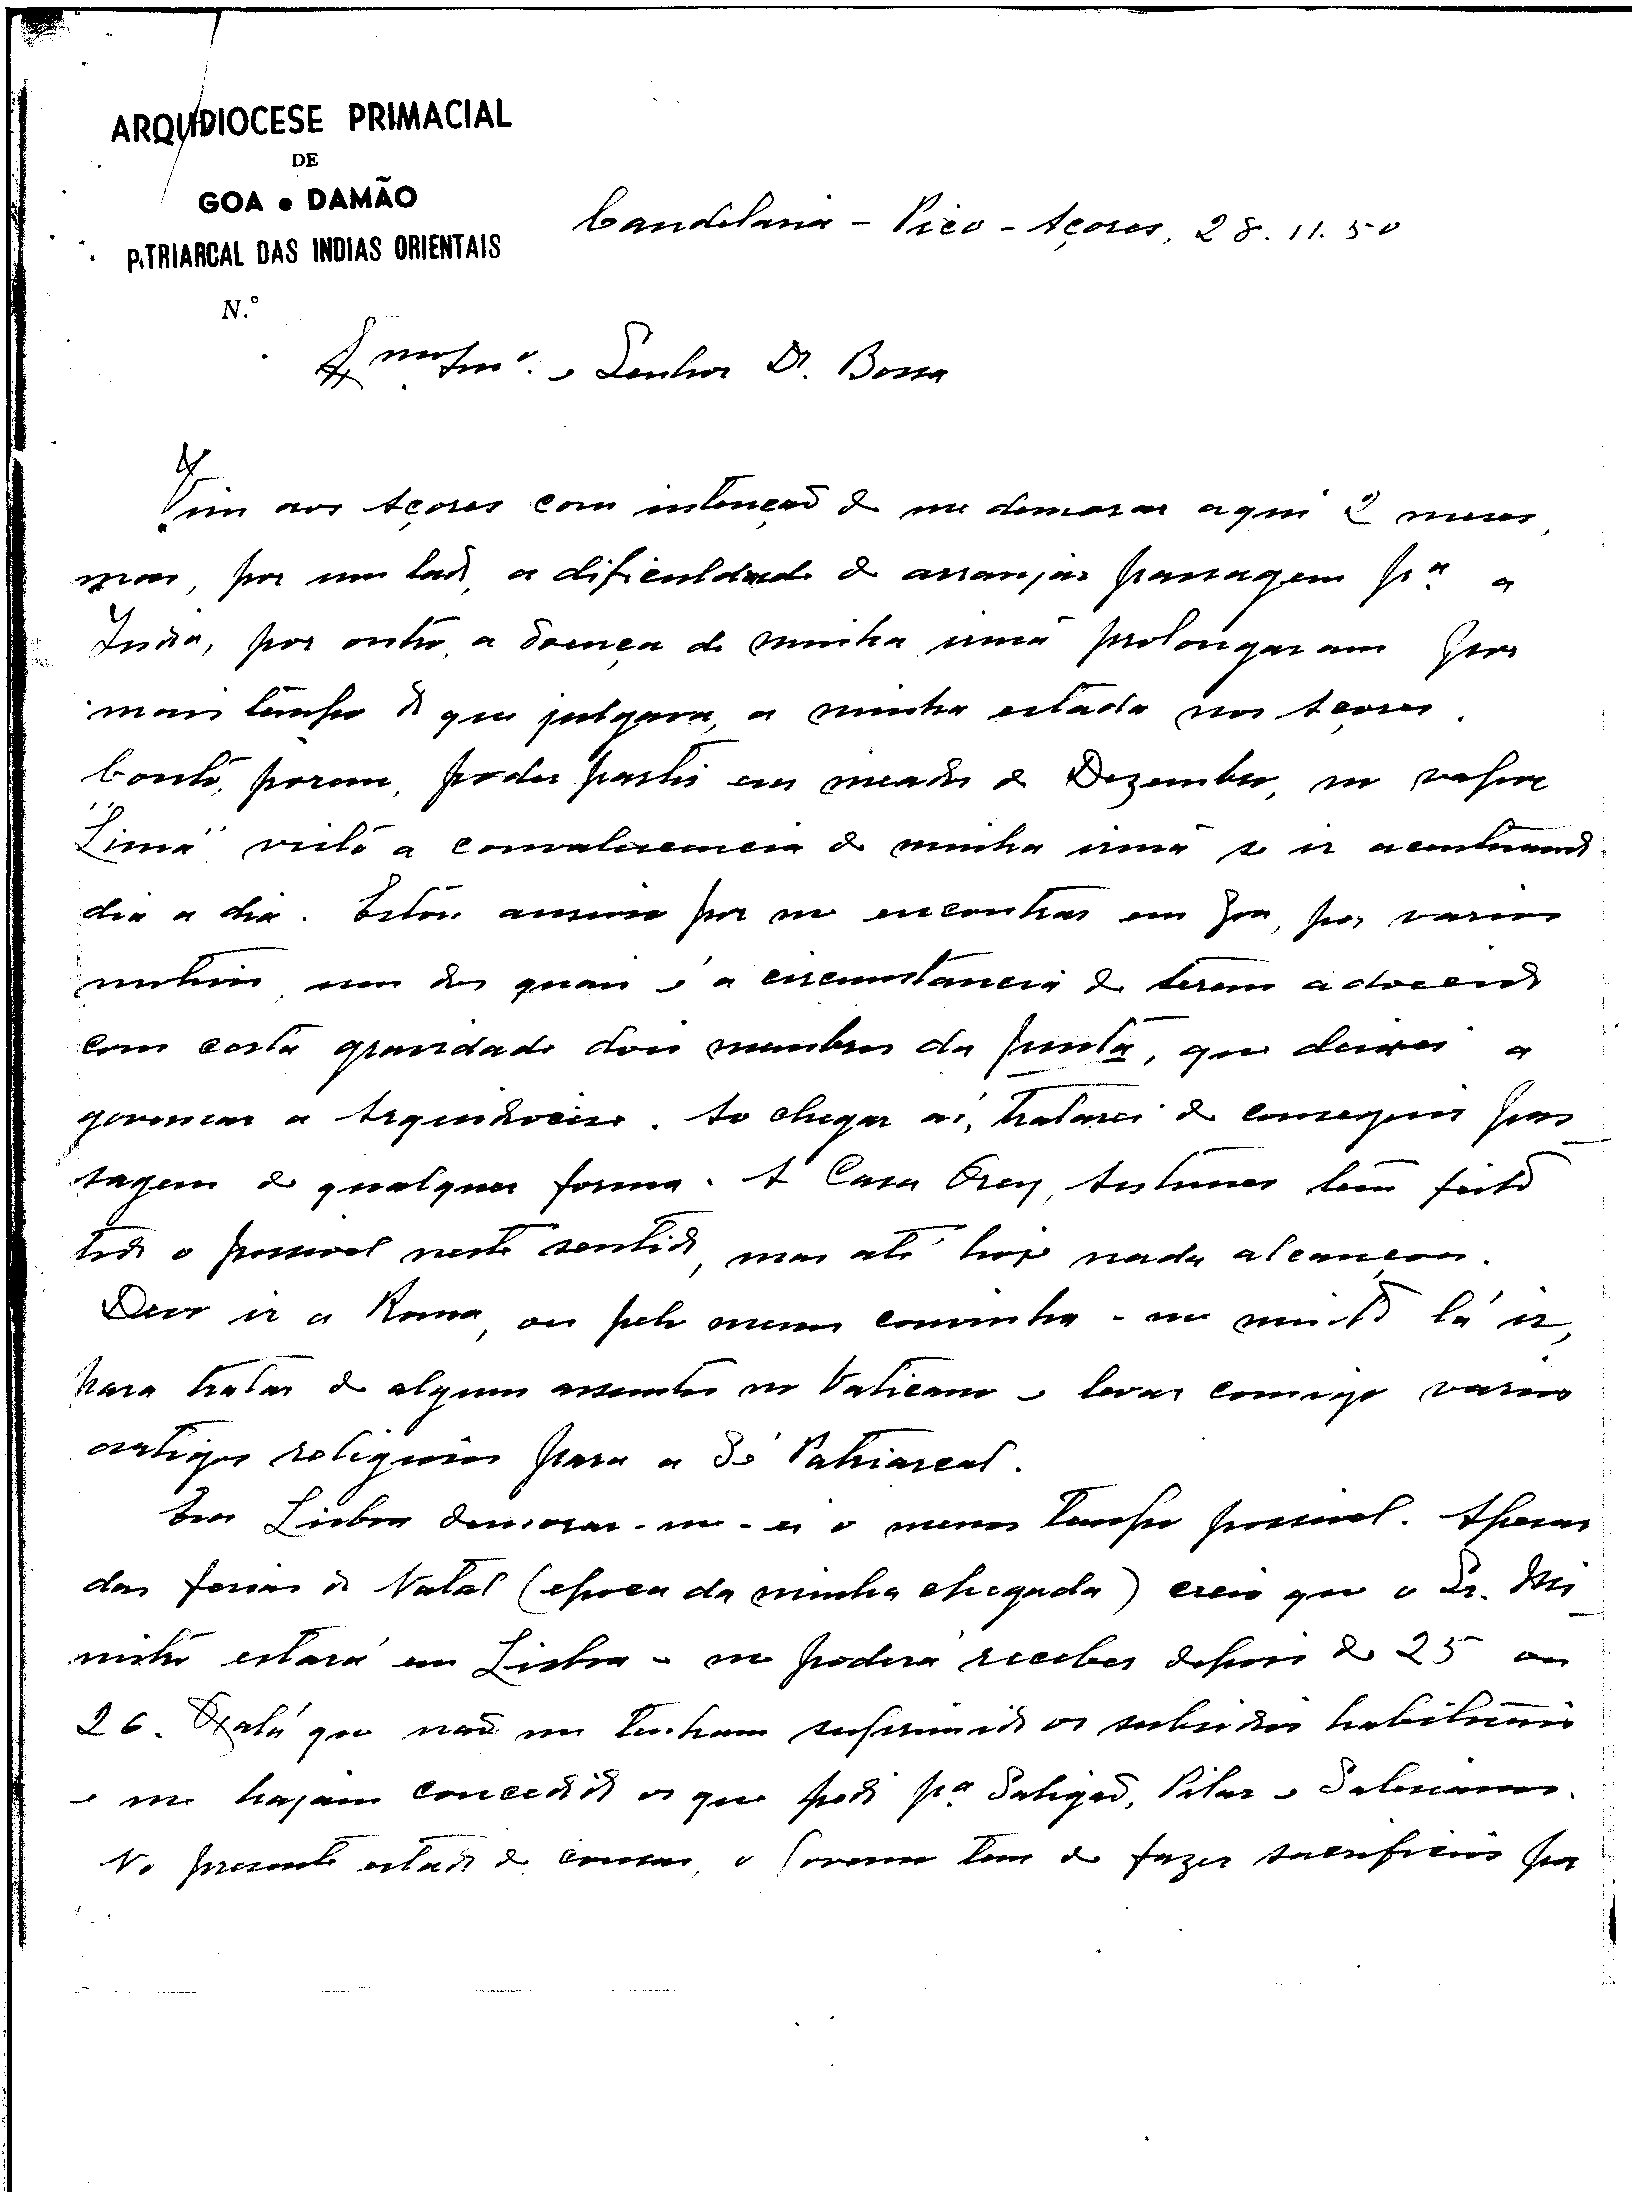 ARQUIDIOCESE PRIMACIAL
DE
GOA e DAMÃO
PATRIARCAL DAS INDIAS ORIENTAIS
N.º
Candelaria - Pico - Açores, 28.11.50
Senhor Dr. Bossa
Vim aos Açores com intenção de me demorar aqui 2 meses,
mas, por um lado, a dificuldade de arranjar passagem pª a
India, por outro, a doença de minha irmã prolongaram por
mais tempo do que julgava, a minha estada nos Açores.
Conto, porem, poder partir em meados de Dezembro, no vapor
"Lima" visto a convalescencia de minha irmã se ir acentuando
dia a dia. Estou ansioso por me encontrar em Goa, por varios
motivos, um dos quais é a circunstancia de terem adoecido
com certa gravidade dois membros da Junta, que deixei a
governar a Arquidiocese. Ao chegar aí, tratarei de conseguir pas
sagem de qualquer forma. A Casa Orey, Antunes tem feito
todo o possivel neste sentido, mas até hoje nada alcançou.
Devo ir a Roma, ou pelo menos convinha-me muito lá ir,
para tratar de alguns assuntos no Vaticano e levar comigo varios
artigos religiosos para a Sé Patriarcal.
Em Lisboa demorar-me-ei o menos tempo possivel. Apesar
das ferias do Natal (epoca da minha chegada) creio que o Sr. Mi
nistro estará em Lisboa e me poderá receber depois de 25 ou
26. Oxalá que não me tenham suprimido os subsidios habituais
e me hajam concedido os que pedi pª Saligão, Pilar e Salesianos.
No presente estado de cousas, o Governo tem de fazer sacrificios por